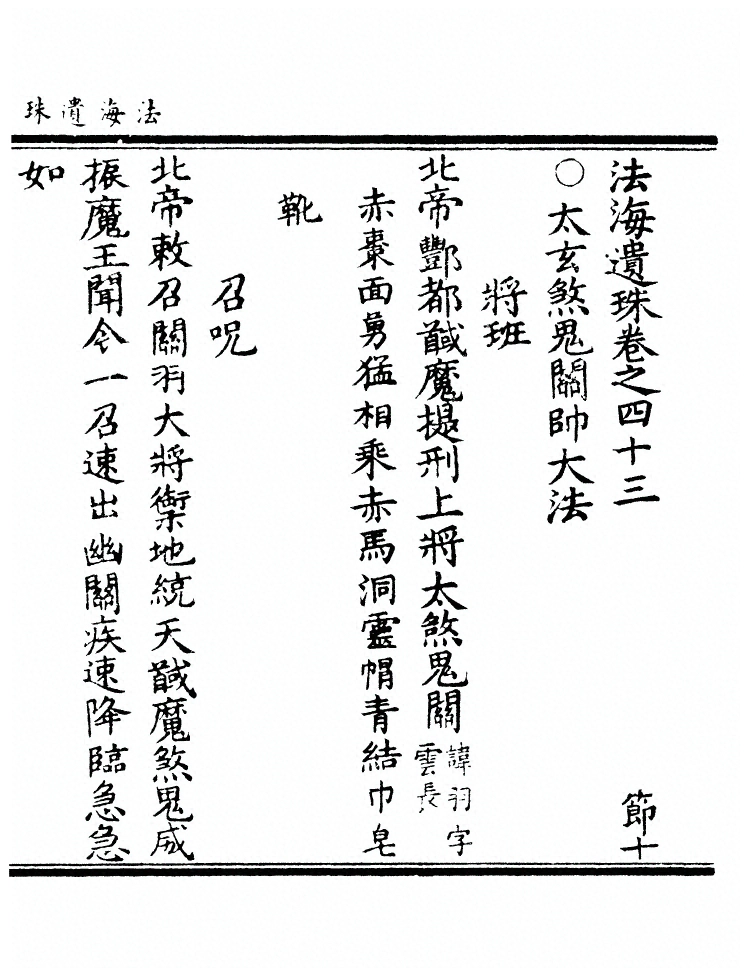 法海遺珠
法海遺珠卷之四十三
節十
○太玄煞鬼關帥大法
將班
北帝酆都馘魔提刑上將太煞鬼關諱羽字雲長
赤棗面勇猛相乘赤馬洞靈帽青結巾皂
靴
召呪
北帝敕召關羽大將禦地統天馘魔煞鬼威
振魔王聞令一召速出幽關疾速降臨急急
如